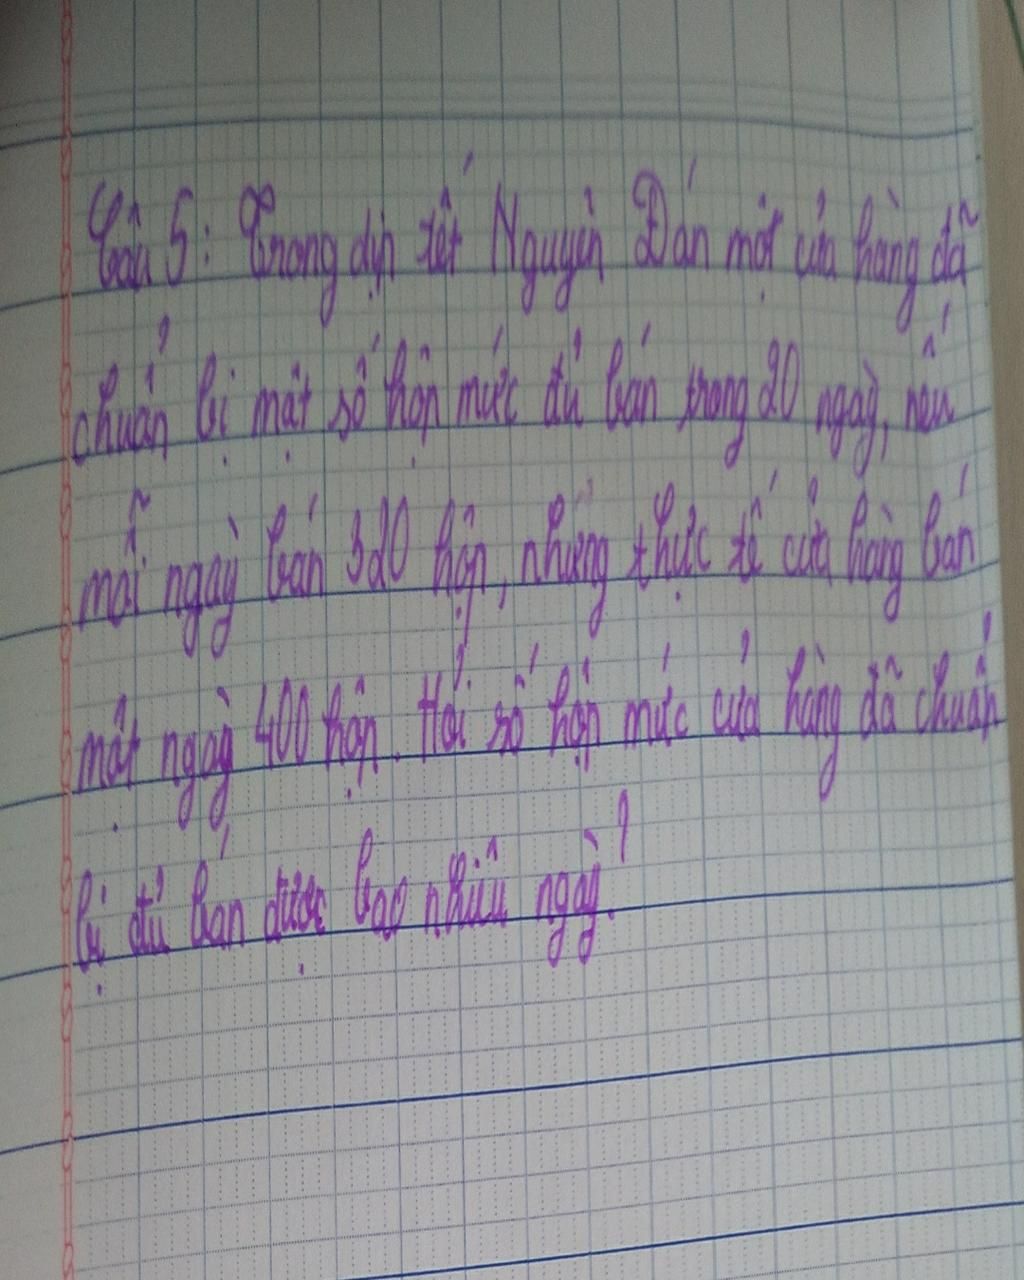 Câu 5: Trong dịp tết Nguyên Đán một cửa hàng đã
chuẩn bị một số hộp mứt đủ bán trong 20 ngày, nếu
mỗi ngày bán 320 hộp, nhưng thực tế cửa hàng bán
một ngày 400 hộp. Hỏi số hộp mứt cửa hàng đã chuẩn
bị đủ bán được bao nhiêu ngày?